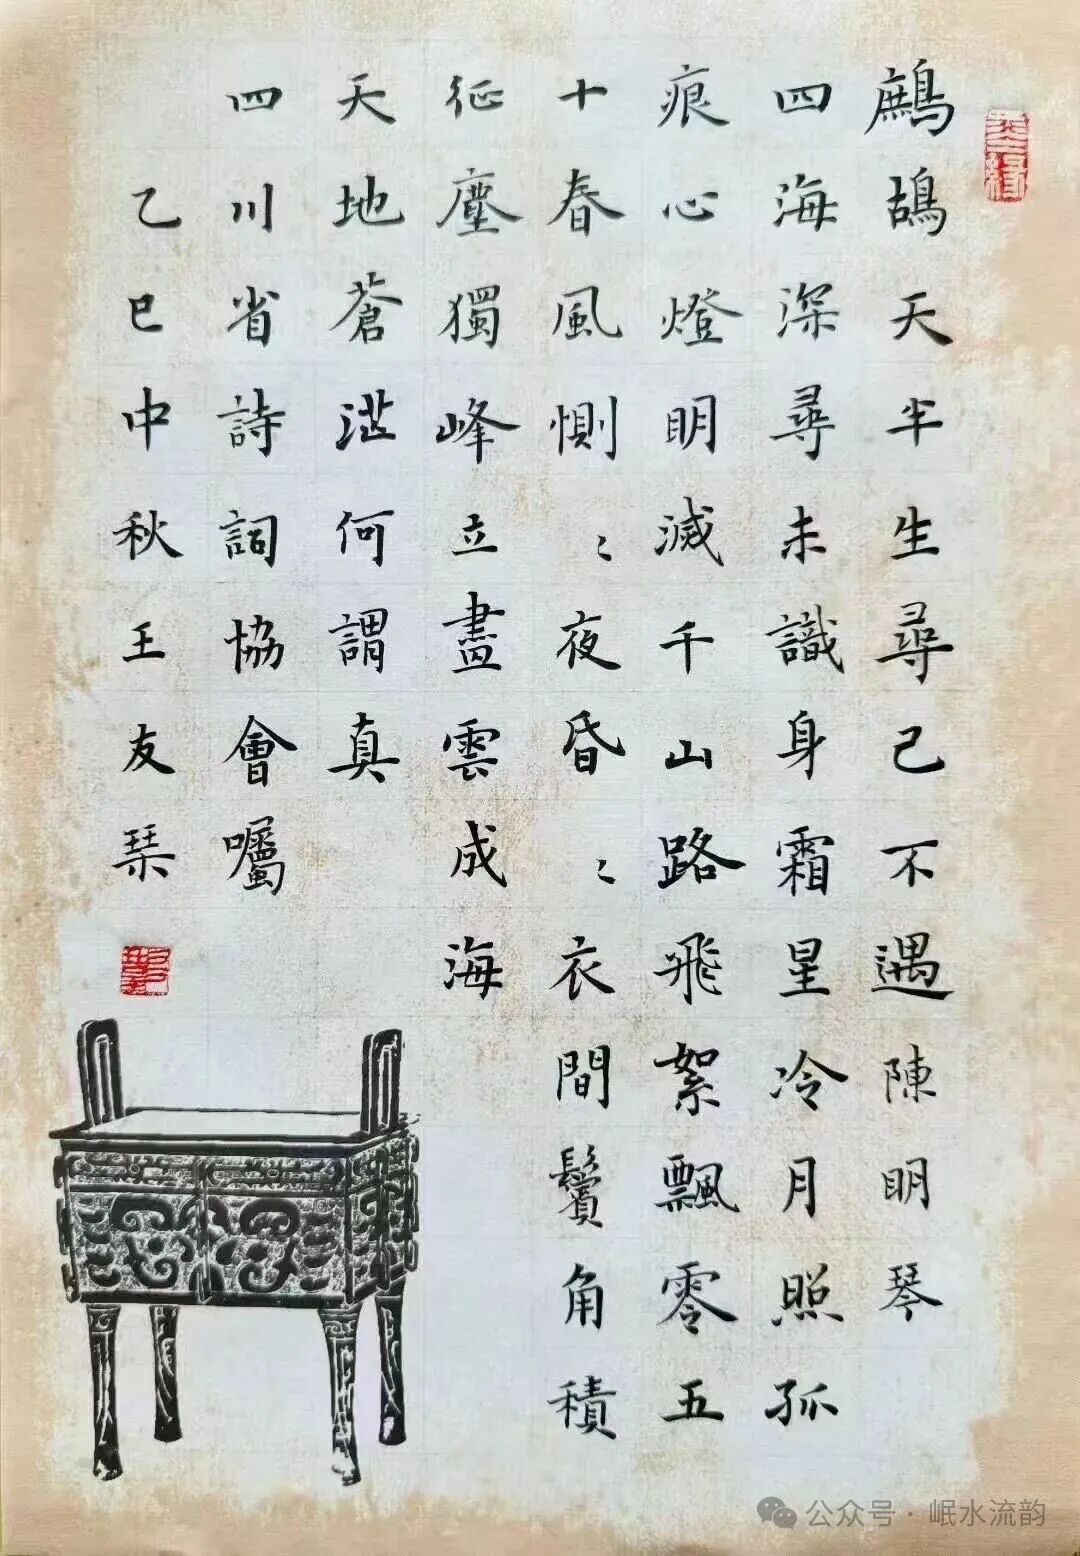 鷓鴣天半生尋己不遇陳明琴
四海深尋未識身霜星冷月照孤
痕心燈明滅千山路飛絮飄零五
十春風惻〻夜昏〻衣間鬢角積
征塵獨峰立盡雲成海
天地蒼茫何謂真
四川省詩詞協會囑
乙巳中秋王友琹
公众号 · 岷水流韵